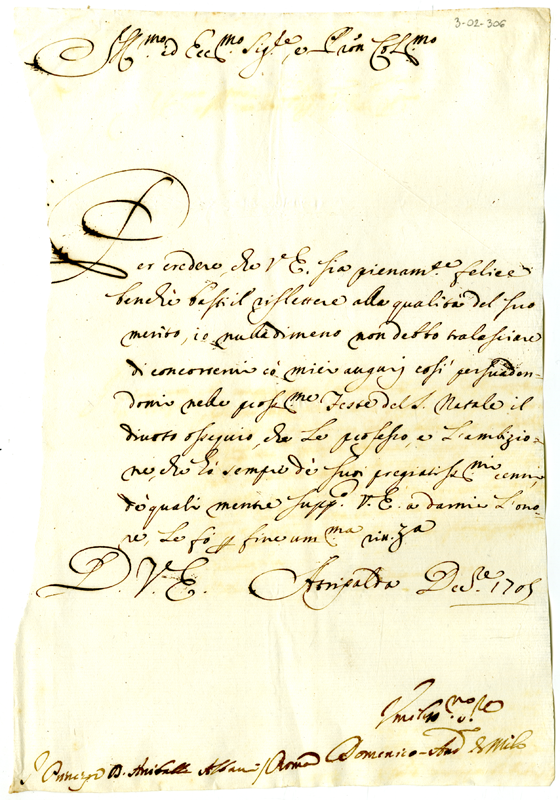 3-02-306
Ill.mo ed Ecc.mo Sig.re, e P'ron Col.mo
Per credere, che V.E. sia pienam.te felice
benche basti il riflettere alla qualità del suo
merito, io nulladimeno non debbo tralasciare
di concorrervi cò miei augurj così persuaden-
domi nelle pross.me Feste del S. Natale il
divoto ossequio, che Le professo, e L'ambizio-
ne, che hò sempre de' suoi pregiatiss.mi cenni
de' quali mentre supp.co V.E. a darmi L'ono-
re, Le fò p fine um.ma riv.za
D. V. E. Atripalda Dec.re 1705
Domenico And. di Milo
S. Principe D. Anibale Albani / Roma